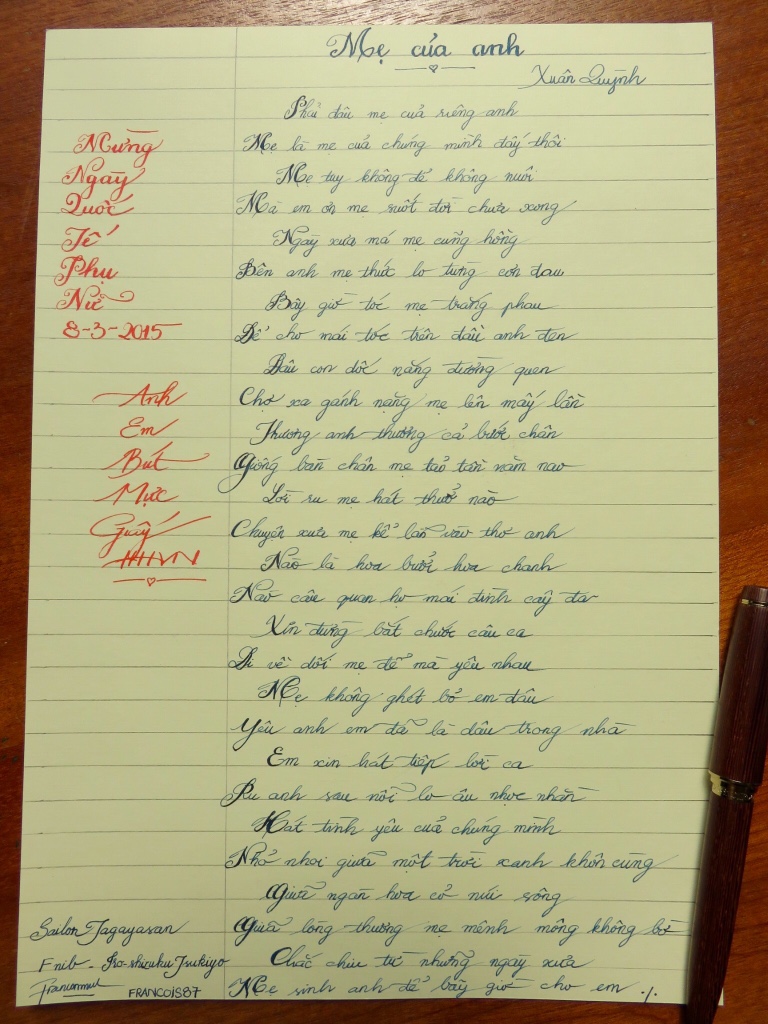 Mẹ của anh
Xuân Quỳnh
Phải đâu mẹ của riêng anh
Mẹ là mẹ của chúng mình đấy thôi
Mẹ tuy không đẻ không nuôi
Mà em ơn mẹ suốt đời chưa xong
Ngày xưa má mẹ cũng hồng
Bên anh mẹ thức lo từng cơn đau
Bây giờ tóc mẹ trắng phau
Để cho mái tóc trên đầu anh đen
Đâu con dốc nắng đường quen
Chợ xa gánh nặng mẹ lên mấy lần
Thương anh thương cả bước chân
Giống bàn chân mẹ tảo tần năm nao
Lời ru mẹ hát thuở nào
Chuyện xưa mẹ kể lẫn vào thơ anh
Nào là hoa bưởi hoa chanh
Nào câu quan họ mái đình cây đa
Xin đừng bắt chước câu ca
Đi về dối mẹ để mà yêu nhau
Mẹ không ghét bỏ em đâu
Yêu anh em đã là dâu trong nhà
Em xin hát tiếp lời ca
Ru anh sau nỗi lo âu nhọc nhằn
Hát tình yêu của chúng mình
Nhỏ nhoi giữa một trời xanh khôn cùng
Giữa ngàn hoa cỏ núi sông
Giữa lòng thương mẹ mênh mông không bờ
Chắc chiu từ những ngày xưa
Mẹ sinh anh để bây giờ cho em ./.
Mừng
Ngày
Quốc
Tế
Phụ
Nữ
8-3-2015
Anh
Em
Bút
Mực
Giấy
HHVN
Sailor Tagayasan
F nib - Iro-shizuku Tsukiyo
FRANCOIS87